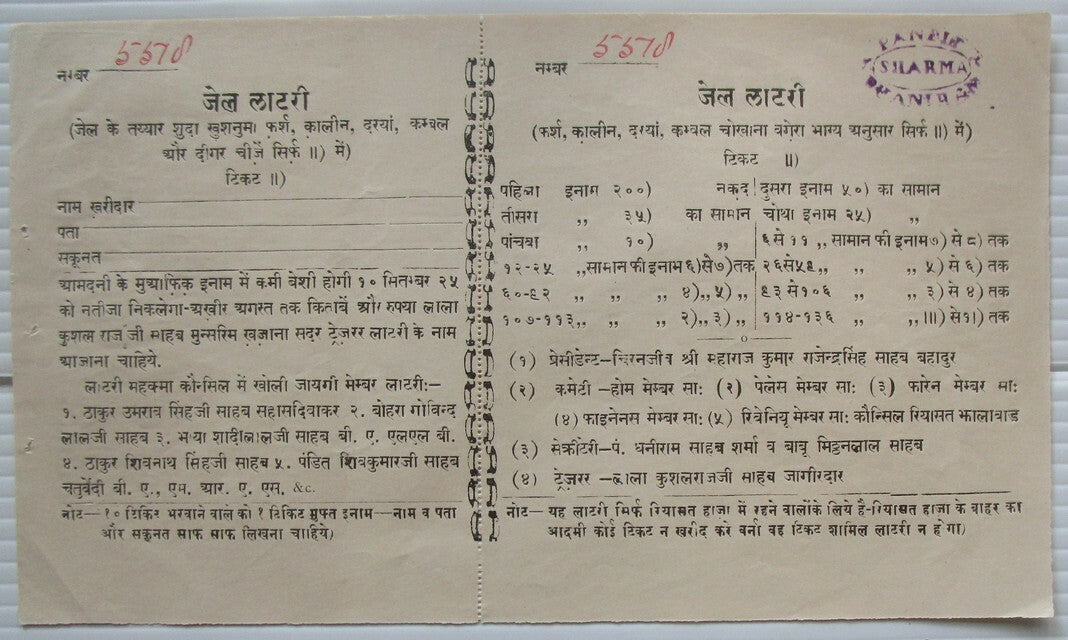 नम्बर 5578
जेल लाटरी
(जेल के तय्यार शुदा खुशनुमा फर्श, कालीन, दरयां, कम्बल
और दीगर चीजें सिर्फ ॥) में)
टिकट ॥)
नाम खरीदार
पता
सकूनत
आमदनी के मुआफ़िक़ इनाम में कमी बेशी होगी १० सितम्बर २५
को नतीजा निकलेगा-अखीर अगस्त तक किताबें और रुपया लाला
कुशल राज जी साहब मुन्सरिम खज़ाना सदर ट्रेज़रर लाटरी के नाम
आजाना चाहिये.
लाटरी महक्मा कौन्सिल में खोली जायगी मेम्बर लाटरी:—
१. ठाकुर उमराव सिंहजी साहब सहासदिवाकर २. बोहरा गोविन्द
लालजी साहब ३. भया शादीलालजी साहब बी. ए. एलएल बी.
४. ठाकुर शिवनाथ सिंहजी साहब ५. पंडित शिवकुमारजी साहब
चतुर्वेदी बी. ए., एम. आर. ए. एस. &c.
नोट— १० टिकिट भरवाने वाले को १ टिकिट मुफ्त इनाम—नाम व पता
और सकूनत साफ साफ लिखना चाहिये)
नम्बर 5578
PANDIT
SHARMA
DHANIRAM
जेल लाटरी
(फर्श, कालीन, दरयां, कम्बल चोखाना वगेरा भाग्य अनुसार सिर्फ ॥) में)
टिकट ॥)
पहिला इनाम २००) नकद दुसरा इनाम ५०) का सामान
तीसरा ,, ३५) का सामान चोथा इनाम २५) ,,
पांचबा ,, १०) ,, ६ से ११ ,, सामान फी इनाम ७) से ८) तक
१२-२५ ,, सामान फी इनाम ६) से ७) तक २६ से ५९ ,, ५) से ६) तक
६०-९२ ,, ,, ,, ४) ,, ५) ,, ९३ से १०६ ,, ३) से ४) तक
१०७-११३ ,, ,, ,, २) ,, ३) ,, ११४-१३६ ,, ,, ,, १॥) से १) तक
(१) प्रेसीडेन्ट—चिरनजीव श्री महाराज कुमार राजेन्द्रसिंह साहब बहादुर
(२) कमेटी—होम मेम्बर सा: (२) पेलेस मेम्बर सा: (३) फारेन मेम्बर सा:
(४) फाइनेनस मेम्बर सा: (५) रिवेनियू मेम्बर सा: कौन्सिल रियासत झालावाड
(३) सेक्रीटरी—पं. धनीराम साहब शर्मा व बाबू मिट्ठनलाल साहब
(४) ट्रेज़रर—लाला कुशलराजजी साहब जागीरदार
नोट— यह लाटरी सिर्फ रियासत हाजा में रहने वालोंके लिये है-रियासत हाजा के बाहर का
आदमी कोई टिकट न खरीद करे वर्ना वह टिकट शामिल लाटरी न होगा)